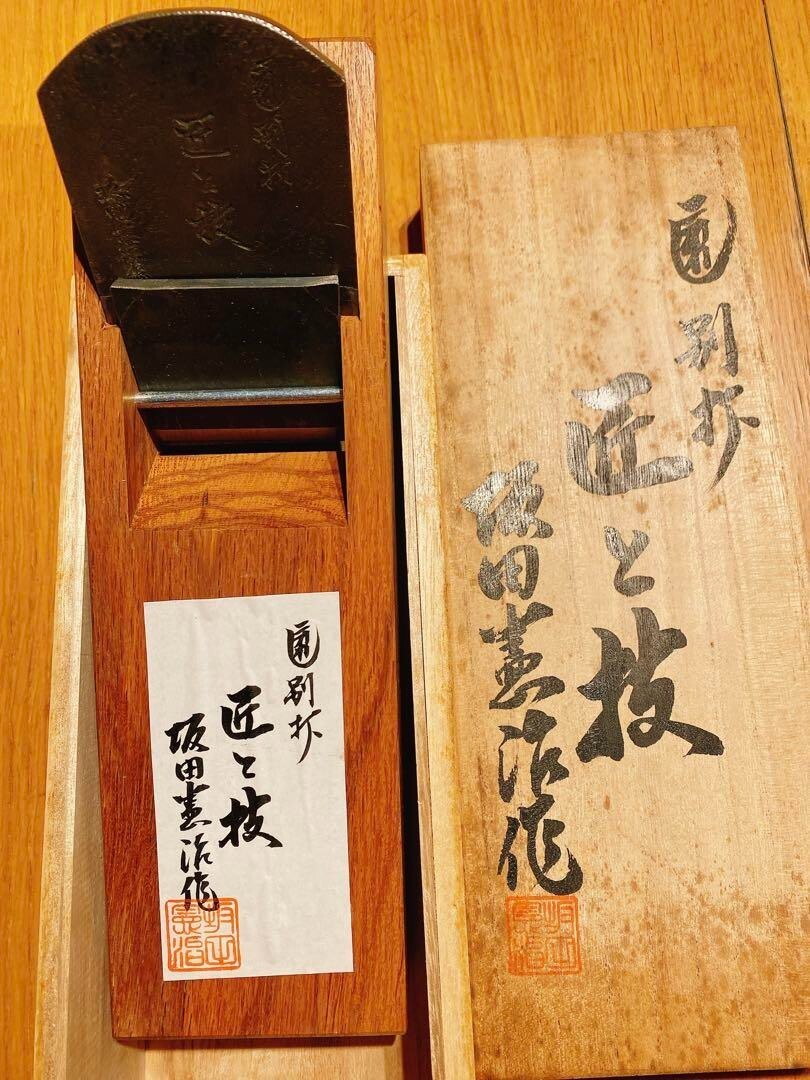 別打
匠と技
別打
匠と技
坂田憲治作
別打
匠と技
坂田憲治作